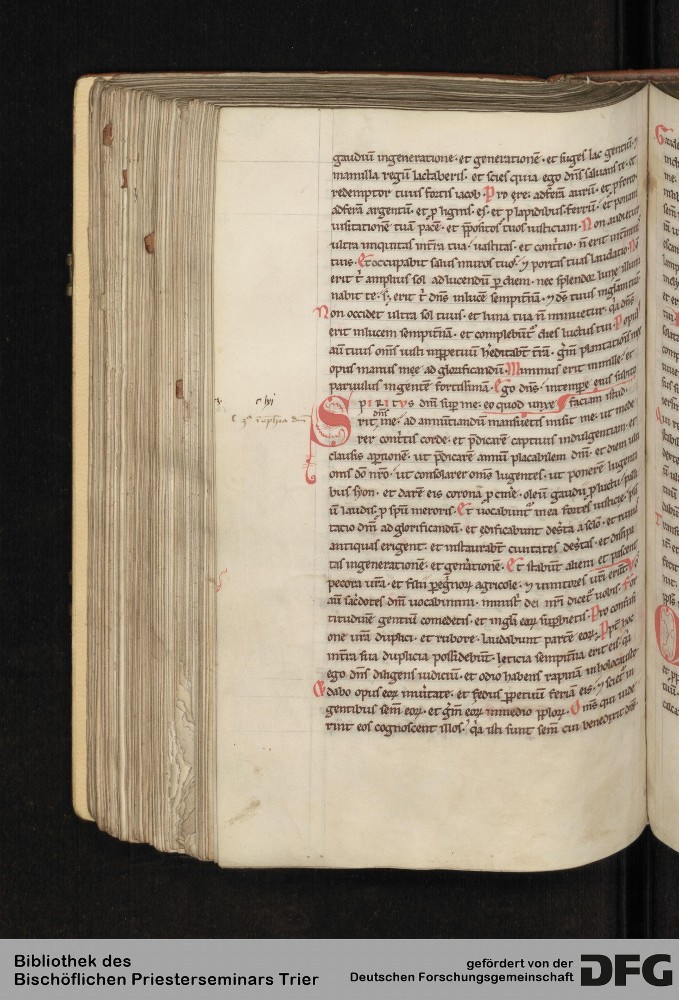 gaudiū ingeneratione · et generationē · et suges lac gentiū · ⁊
mamilla regū lactaberis · et scies quia ego dñs saluans te · et
redemptor tuus fortis iacob · Pro ere · adferā aurū · et ꝑ ferro ·
adferā argentū · et ꝑ lignis · es · et ꝑ lapidibus · ferrū · et ponam
uisitationē tuā pacē · et p̄positos tuos iusticiam · Non audietur
ultra iniquitas in tr̄a tua · uastitas · et contritio · ī
tuis · Et occupabit salus muros tuos · ⁊ portas tuas laudatio · Nō
erit t̄ amplius sol ad lucendū ꝑ diem · nec splendor lune illumi
nabit te · s; erit t̄ dñs in lucē sempit̄nā · ⁊ ds̄ tuus in gliam tuā
Non occidet ultra sol tuus · et luna tua n̄ minuetur · q̄a dñs
erit in lucem sempit̄nā · et complebūt̄ dies luctus tui · Populus
aū tuus om̄s iusti in ꝑpetuum h̄editabt̄ tr̄ā · ḡm̄ plantationis mee
opus manus mee ad glorificandū · Minimus erit in mille · et
paruulus in gentē fortissimā · Ego dñs · in tempe eius subito
faciam istud ·
SPIRITVS dn̄i sup me · eo quod unxe
rit dn̄s me · ad annūtiandū mansuetis misit me · ut mede
rer cont̄tis corde · et p̄dicarē captiuis indulgentiam · et
clausis aꝑtionē · ut p̄dicarē annū placabilem dn̄i · et diem ultī
onis dō nr̄o · ut consolarer om̄s lugentes · ut ponerē lugenti
bus syon · et darē eis coronā ꝑ cinē · oleū gaudii ꝑ luctu · palli
ū laudis ꝑ spū meroris · Et uocabunt̄ in ea fortes iusticie · plā
tatio dn̄i ad glorificandū · et edificabunt desta a sclō · et ruinas
antiquas erigent · et instaurabt̄ ciuitates destas · et dissipa
tas in generationē et gen̄ationē · Et stabunt alieni et pascent
pecora ur̄a · et filii ꝑegnor agricole · ⁊ uinitores ur̄i erūt · Vos
aū sac̄dotes dn̄i uocabimini · ministi dei nr̄i dicet̄ uobis · For
titudinē gentiū comedetis · et in glā eoꝝ supbietis · Pro confusi
one ur̄a duplici · et rubore · laudabunt partē eoꝝ · Ppt̄ hoc
in tr̄a sua duplicia possidebūt · leticia sempit̄na erit eis · q̄a
ego dñs diligens iudiciū · et odio habens rapinā in holocausto
Et dabo opus eoꝝ in uītate · et fedus ꝑpetuū feriā eis · ⁊ sciet̄ in
gentibus sem̄ eoꝝ · et ḡm̄ eoꝝ in medio pploꝝ · Om̄s qui uide
rint eos cognoscent illos · q̄a isti sunt sem̄ cui benedixit dñs ·
Bibliothek des
Bischöflichen Priesterseminars Trier
gefördert von der
Deutschen Forschungsgemeinschaft
DFG